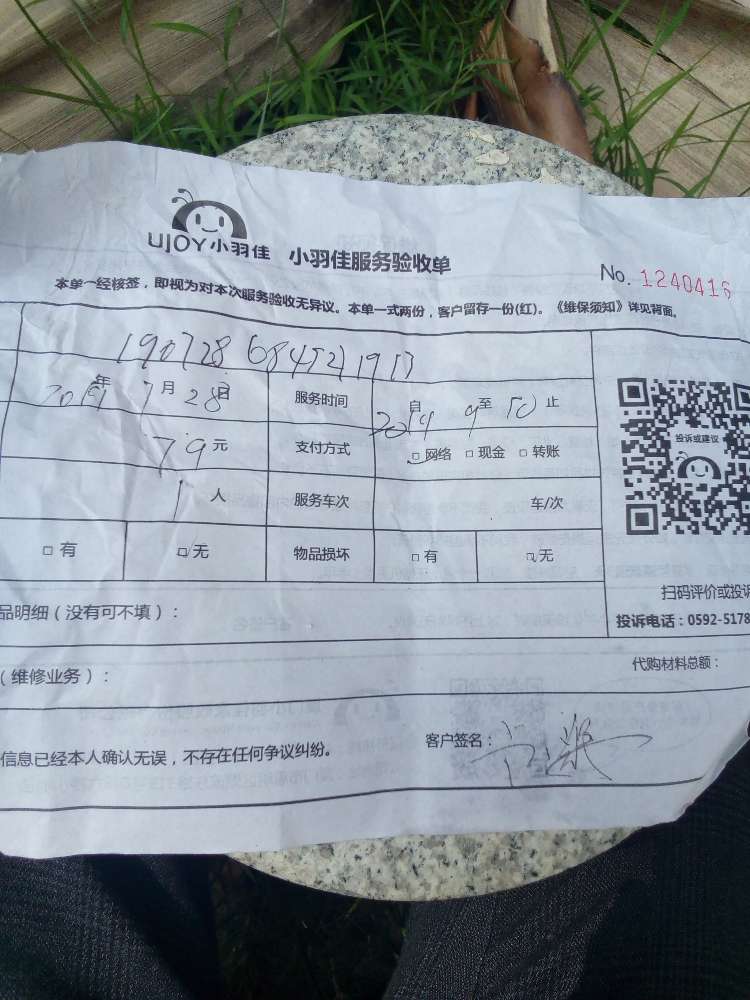 UJOY小羽佳 小羽佳服务验收单
No. 1240416
本单一经核签，即视为对本次服务验收无异议。本单一式两份，客户留存一份(红)。《维保须知》详见背面。
2019年7月28日 服务时间 自 9 至 10 止
79元 支付方式 □网络 □现金 □转账
1人 服务车次 车/次
□有 □无 物品损坏 □有 □无
投诉或建议
扫码评价或投诉
投诉电话：0592-5178
品明细（没有可不填）：
代购材料总额：
（维修业务）：
信息已经本人确认无误，不存在任何争议纠纷。 客户签名：